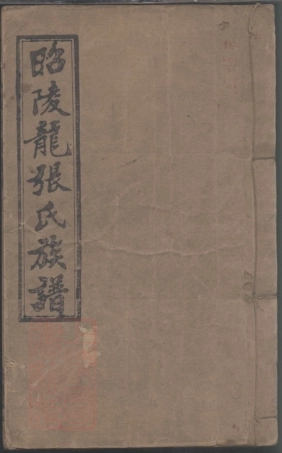 昭陵龍張氏族譜